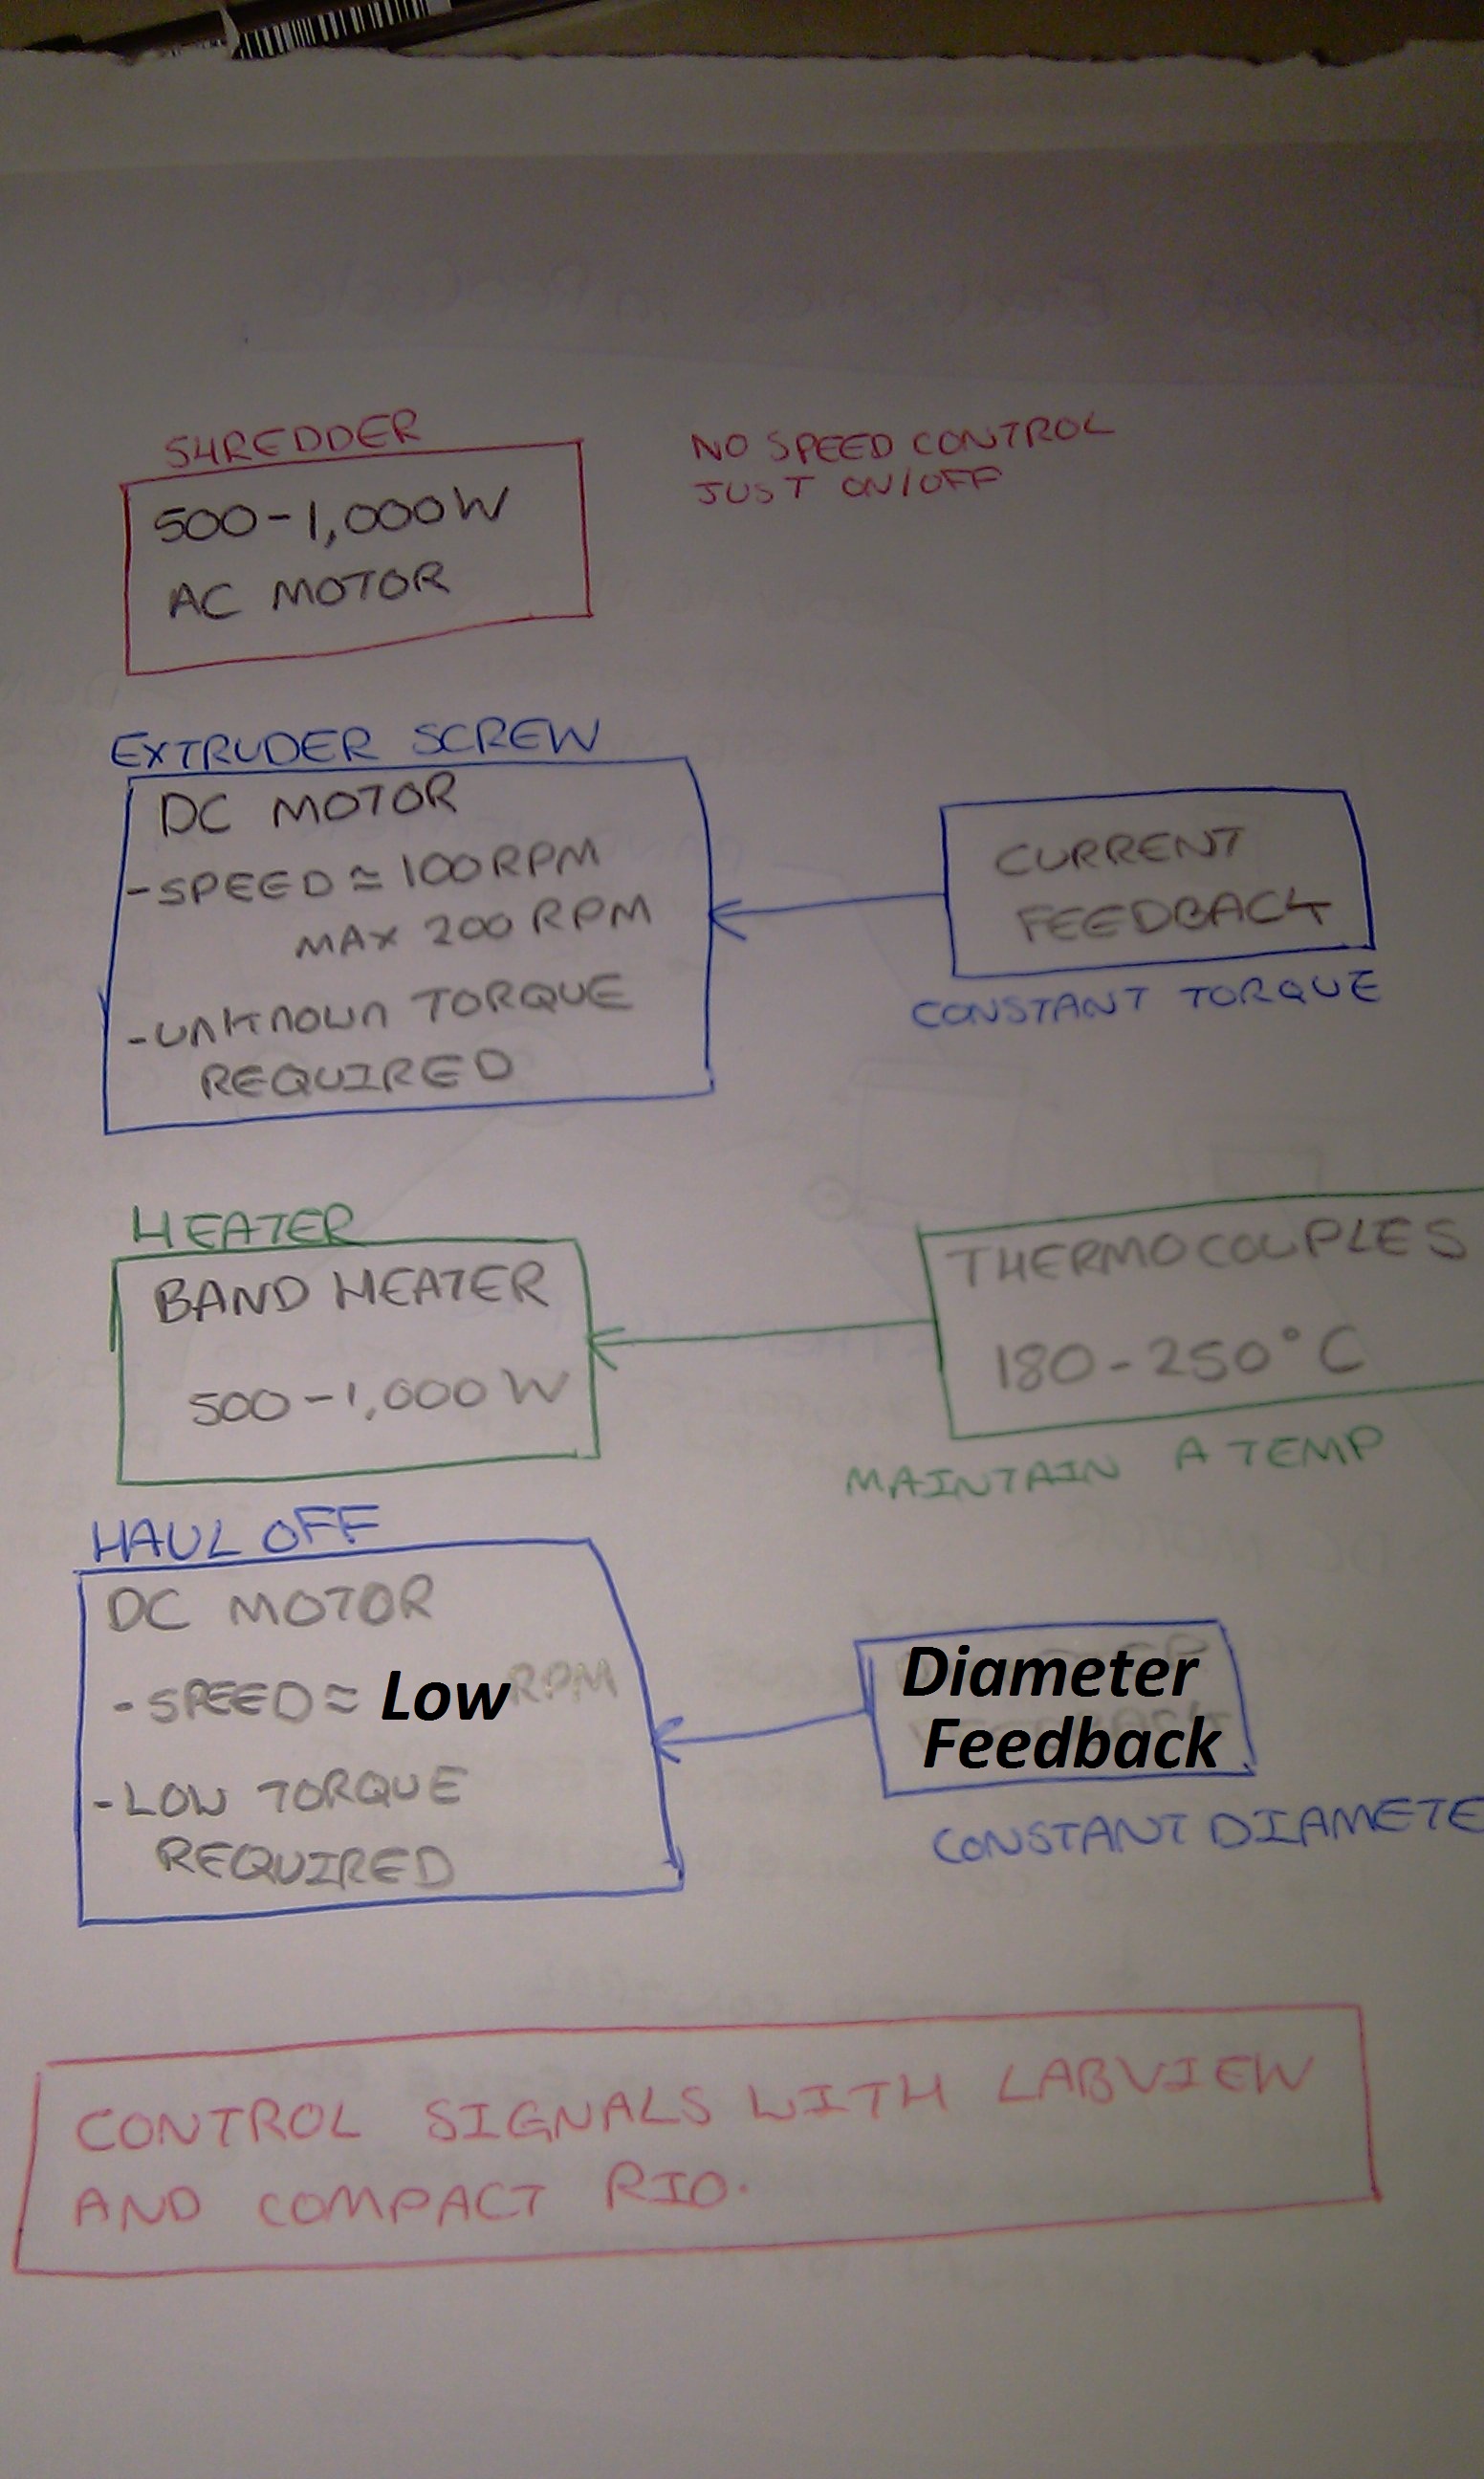 SHREDDER
500-1,000W
AC MOTOR
NO SPEED CONTROL
JUST ON/OFF
EXTRUDER SCREW
DC MOTOR
-SPEED ≈ 100RPM
MAX 200 RPM
-UNKNOWN TORQUE
REQUIRED
CURRENT
FEEDBACK
CONSTANT TORQUE
HEATER
BAND HEATER
500-1,000W
THERMOCOUPLES
180-250°C
MAINTAIN A TEMP
HAUL OFF
DC MOTOR
-SPEED ≈ Low RPM
-LOW TORQUE
REQUIRED
Diameter
Feedback
CONSTANT DIAMETE
CONTROL SIGNALS WITH LABVIEW
AND COMPACT RIO.